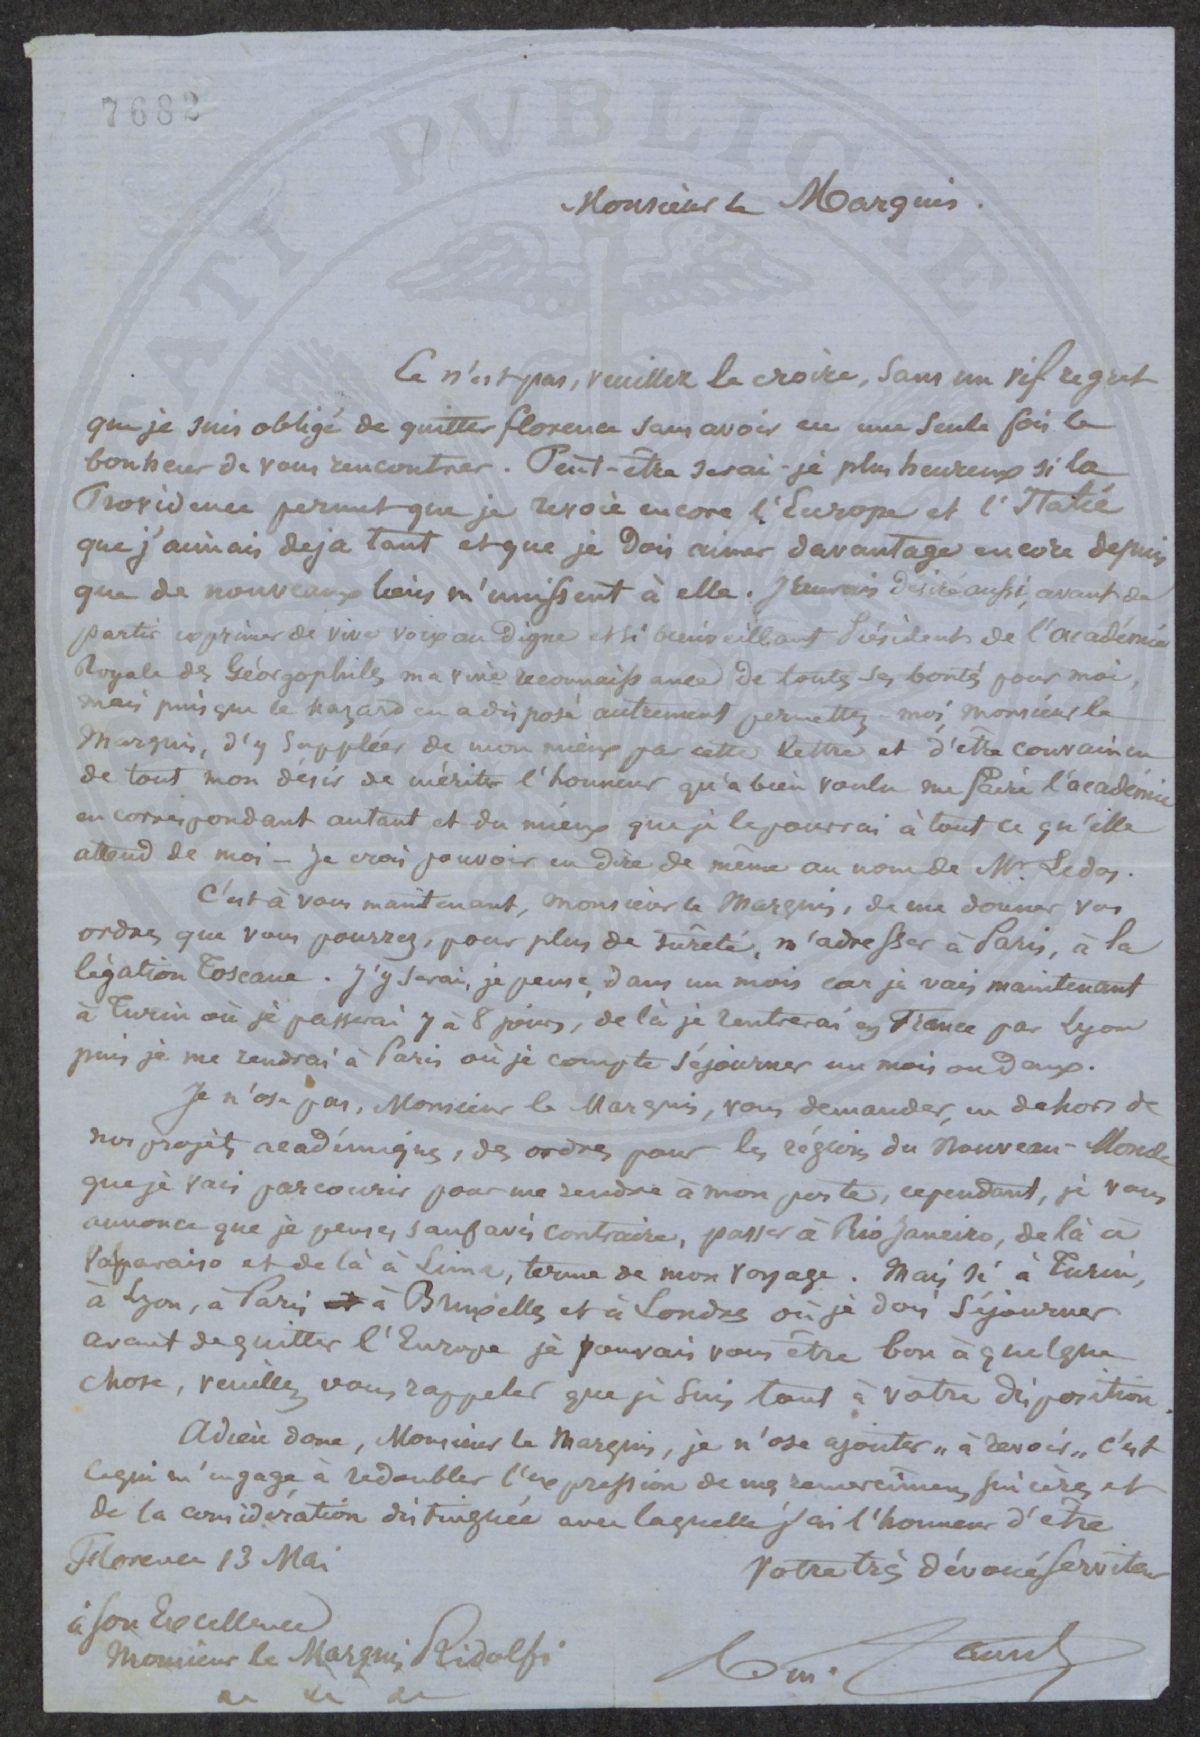 7682
PUBLICAE
Monsieur le Marquis.
Ce n'est pas, veuillez le croire, sans un vif regret
que je suis obligé de quitter florence sans avoir eu une seule fois le
bonheur de vous rencontrer. Peut-être serai-je plus heureux si la
Providence permet que je revoie encore l'Europe et l'Italie
que j'aimais deja tant et que je dois aimer davantage encore depuis
que de nouveaux liens m'unissent à elle. J'aurais désiré aussi, avant de
partir exprimer de vive voix au digne et si bienveillant Président de l'académie
Royale des Géorgophiles ma vive reconnaissance de toutes ses bontés pour moi,
mais puisque le hazard en a disposé autrement permettez-moi, monsieur le
Marquis, d'y suppléer de mon mieux par cette lettre et d'être convaincu
de tout mon désir de mériter l'honneur qu'a bien voulu me faire l'académie
en correspondant autant et du mieux que je le pourrai à tout ce qu'elle
attend de moi - Je crois pouvoir en dire de même au nom de Mr. Ledos.
C'est à vous maintenant, monsieur le Marquis, de me donner vos
ordres que vous pourrez, pour plus de sûreté, m'adresser à Paris, à la
légation Toscane. J'y serai, je pense, dans un mois car je vais maintenant
à Turin où je passerai 7 à 8 jours, de là je rentrerai en France par Lyon
puis je me rendrai à Paris où je compte séjourner un mois ou deux.
Je n'ose pas, Monsieur le Marquis, vous demander, en dehors de
nos projets académiques, des ordres pour les régions du Nouveau-Monde
que je vais parcourir pour me rendre à mon poste, cependant, je vous
annonce que je pense, sauf avis contraire, passer à Rio Janeiro, de là à
Valparaiso et de là à Lima, terme de mon voyage. Mais si à Turin,
à Lyon, à Paris à Bruxelles et à Londres où je dois séjourner
avant de quitter l'Europe je pouvais vous être bon à quelque
chose, veuillez vous rappeler que je suis tout à votre disposition.
Adieu donc, Monsieur le Marquis, je n'ose ajouter „à revoir„ c'est
ce qui m'engage à redoubler l'expression de mes remercimens sincères et
de la considération distinguée avec laquelle j'ai l'honneur d'être
Florence 13 Mai
Votre très dévoué serviteur
à son Excellence
Monsieur le Marquis Ridolfi